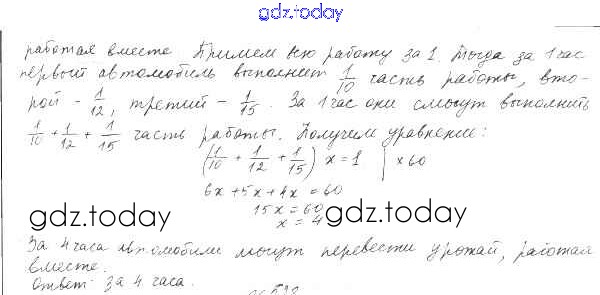 gdz.today
работая вместе. Примем всю работу за 1. Тогда за 1 час
первый автомобиль выполнит 1/10 часть работы, вто-
рой - 1/12, третий - 1/15. За 1 час они смогут выполнить
1/10 + 1/12 + 1/15 часть работы. Получим уравнение:
(1/10 + 1/12 + 1/15) x = 1 | x 60
6x + 5x + 4x = 60
15x = 60
x = 4
gdz.today gdz.today
За 4 часа автомобили могут перевести урожай, работая
вместе.
Ответ: за 4 часа.